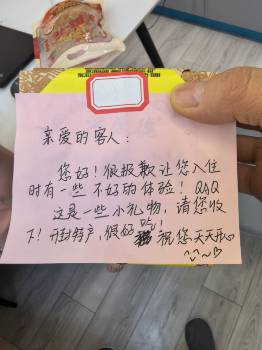 亲爱的客人：
您好！很报歉让您入住
时有一些不好的体验！QAQ
这是一些小礼物，请您收
下！开封特产，很好吃！祝您天天开♡
^◡^~♡